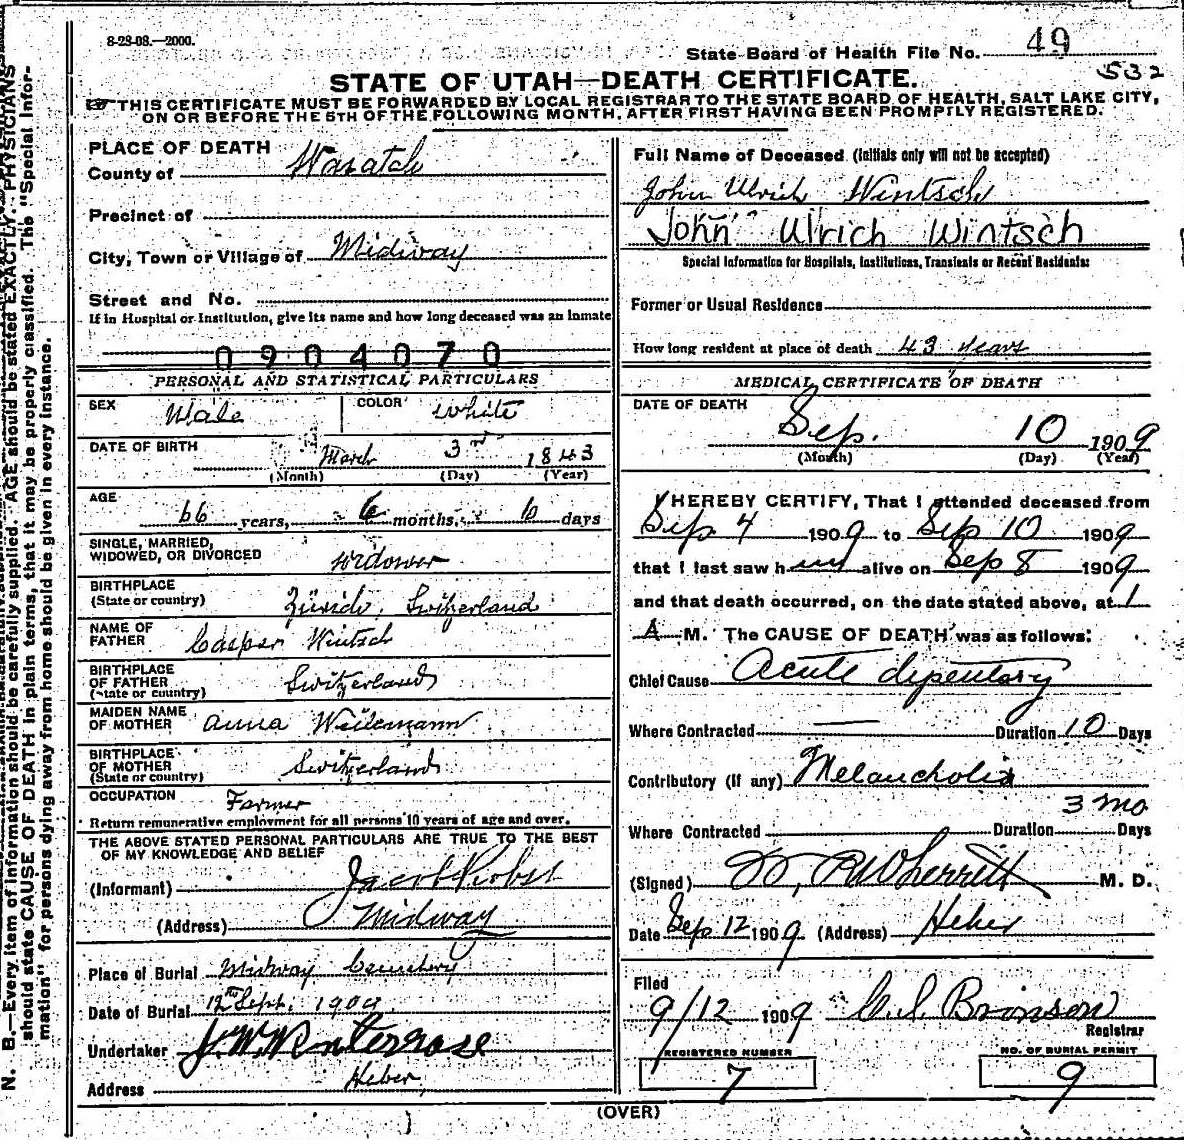 8-28-08.—2000.
State Board of Health File No. 49
532
STATE OF UTAH—DEATH CERTIFICATE.
☞ THIS CERTIFICATE MUST BE FORWARDED BY LOCAL REGISTRAR TO THE STATE BOARD OF HEALTH, SALT LAKE CITY,
ON OR BEFORE THE 5TH OF THE FOLLOWING MONTH, AFTER FIRST HAVING BEEN PROMPTLY REGISTERED.
PLACE OF DEATH
County of Wasatch
Precinct of
City, Town or Village of Midway
Street and No.
If in Hospital or Institution, give its name and how long deceased was an inmate
0904070
PERSONAL AND STATISTICAL PARTICULARS
SEX Male COLOR White
DATE OF BIRTH March 3rd 1843
(Month) (Day) (Year)
AGE
66 years, 6 months, 6 days
SINGLE, MARRIED,
WIDOWED, OR DIVORCED widower
BIRTHPLACE
(State or country) Zürich, Switzerland
NAME OF
FATHER Casper Wintsch
BIRTHPLACE
OF FATHER
(State or country) Switzerland
MAIDEN NAME
OF MOTHER Anna
BIRTHPLACE
OF MOTHER
(State or country) Switzerland
OCCUPATION Farmer
Return remunerative employment for all persons 10 years of age and over.
THE ABOVE STATED PERSONAL PARTICULARS ARE TRUE TO THE BEST
OF MY KNOWLEDGE AND BELIEF
(Informant) Jacob Probst
(Address) Midway
Place of Burial Midway Cemetery
Date of Burial 12th Sept. 1909
Undertaker
Address Heber
Full Name of Deceased (Initials only will not be accepted)
John Ulrich Wintsch
John Ulrich Wintsch
Special Information for Hospitals, Institutions, Transients or Recent Residents:
Former or Usual Residence
How long resident at place of death 43 years
MEDICAL CERTIFICATE OF DEATH
DATE OF DEATH
Sep. 10 1909
(Month) (Day) (Year)
I HEREBY CERTIFY, That I attended deceased from
Sep 4 1909 to Sep 10 1909
that I last saw him alive on Sep 8 1909
and that death occurred, on the date stated above, at 1
A M. The CAUSE OF DEATH was as follows:
Chief Cause Acute dysentary
Where Contracted — Duration 10 Days
Contributory (if any) Melancholia
3 mo
Where Contracted Duration Days
(Signed) W. R. Wherritt M. D.
Date Sep 12 1909 (Address) Heber
Filed
9/12 1909 C. S. Bronson
Registrar
REGISTERED NUMBER
7
NO. OF BURIAL PERMIT
9
(OVER)
N. B.—Every item of information should be carefully supplied. AGE should be stated EXACTLY. PHYSICIANS
should state CAUSE OF DEATH in plain terms, that it may be properly classified. The "Special Infor-
mation" for persons dying away from home should be given in every instance.